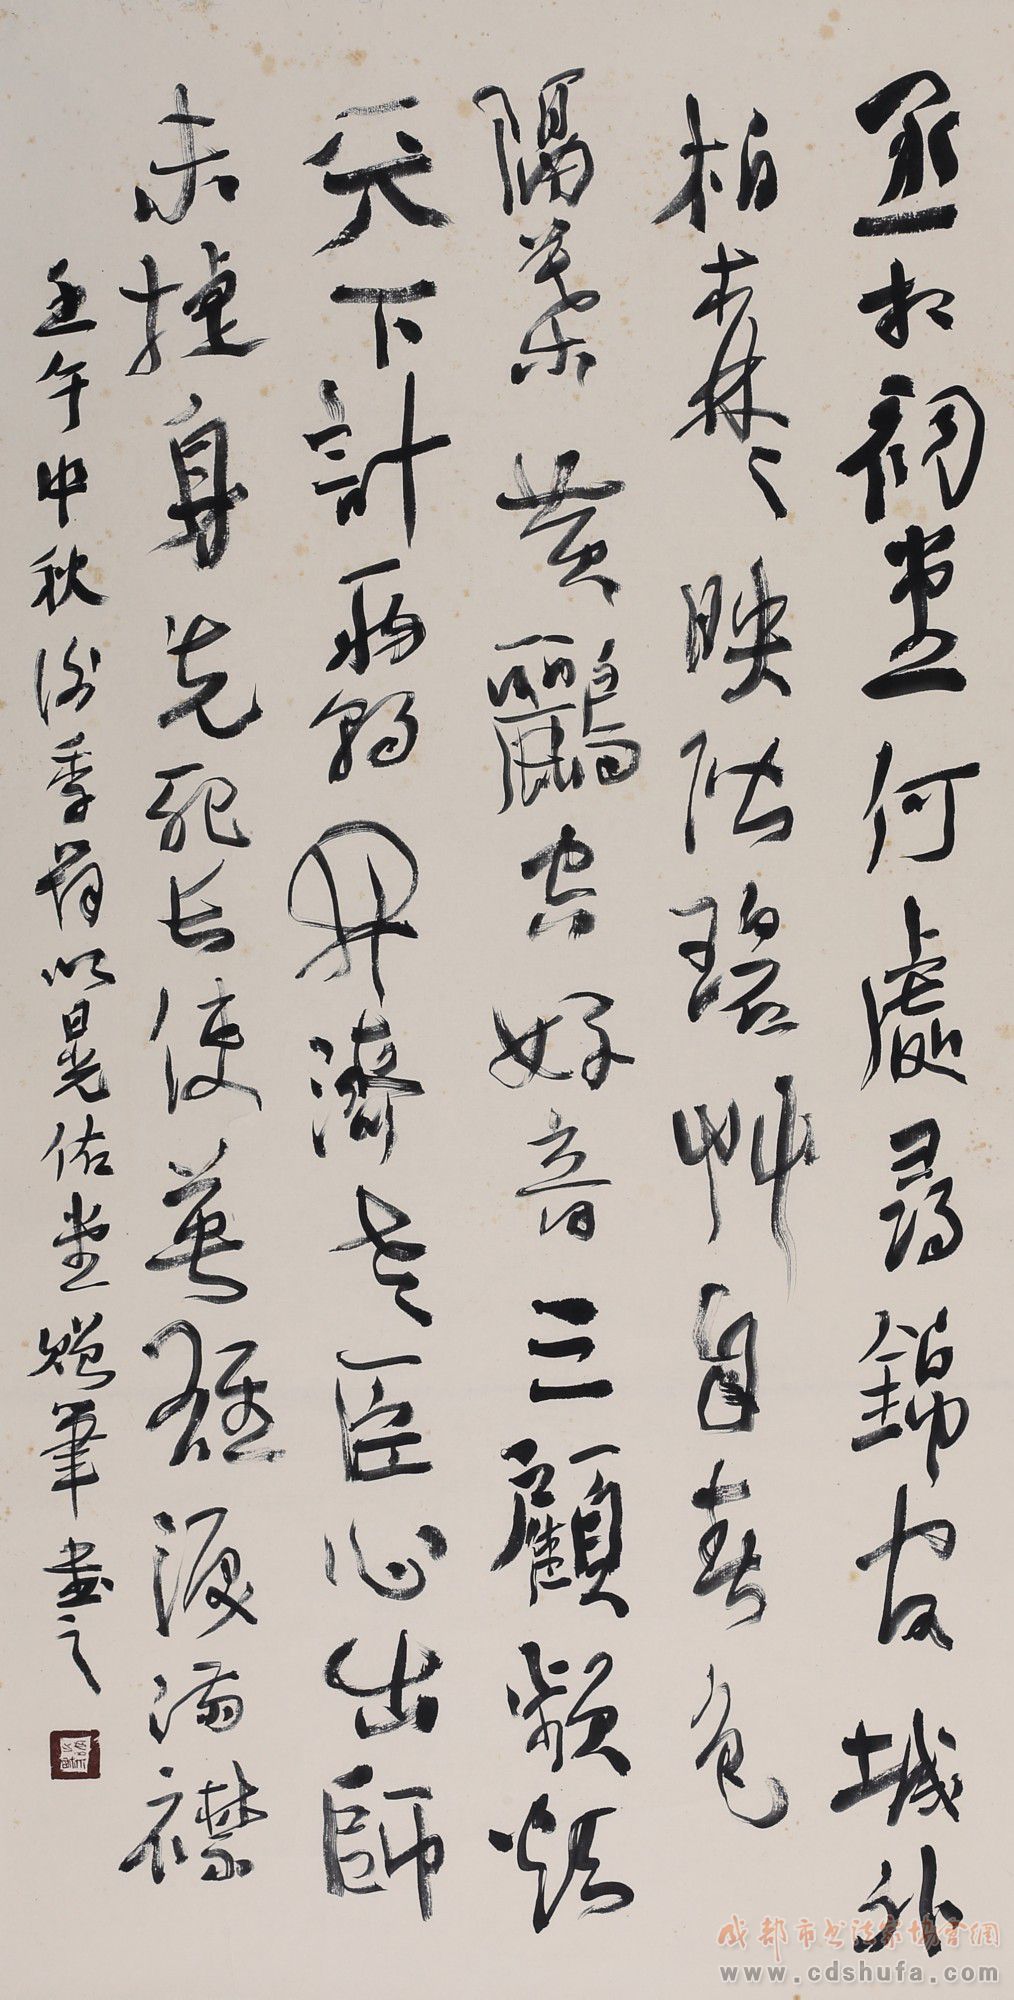 丞相祠堂何處尋錦官城外
柏木森林〻映階碧艸自春色
隔葉黄鸝空好音三顧頻煩
天下計兩朝開濟老臣心出師
未捷身先死長使英雄淚滿襟
壬午中秋以晃佑堂贈筆書之
成都市书法家协会網
www.cdshufa.com